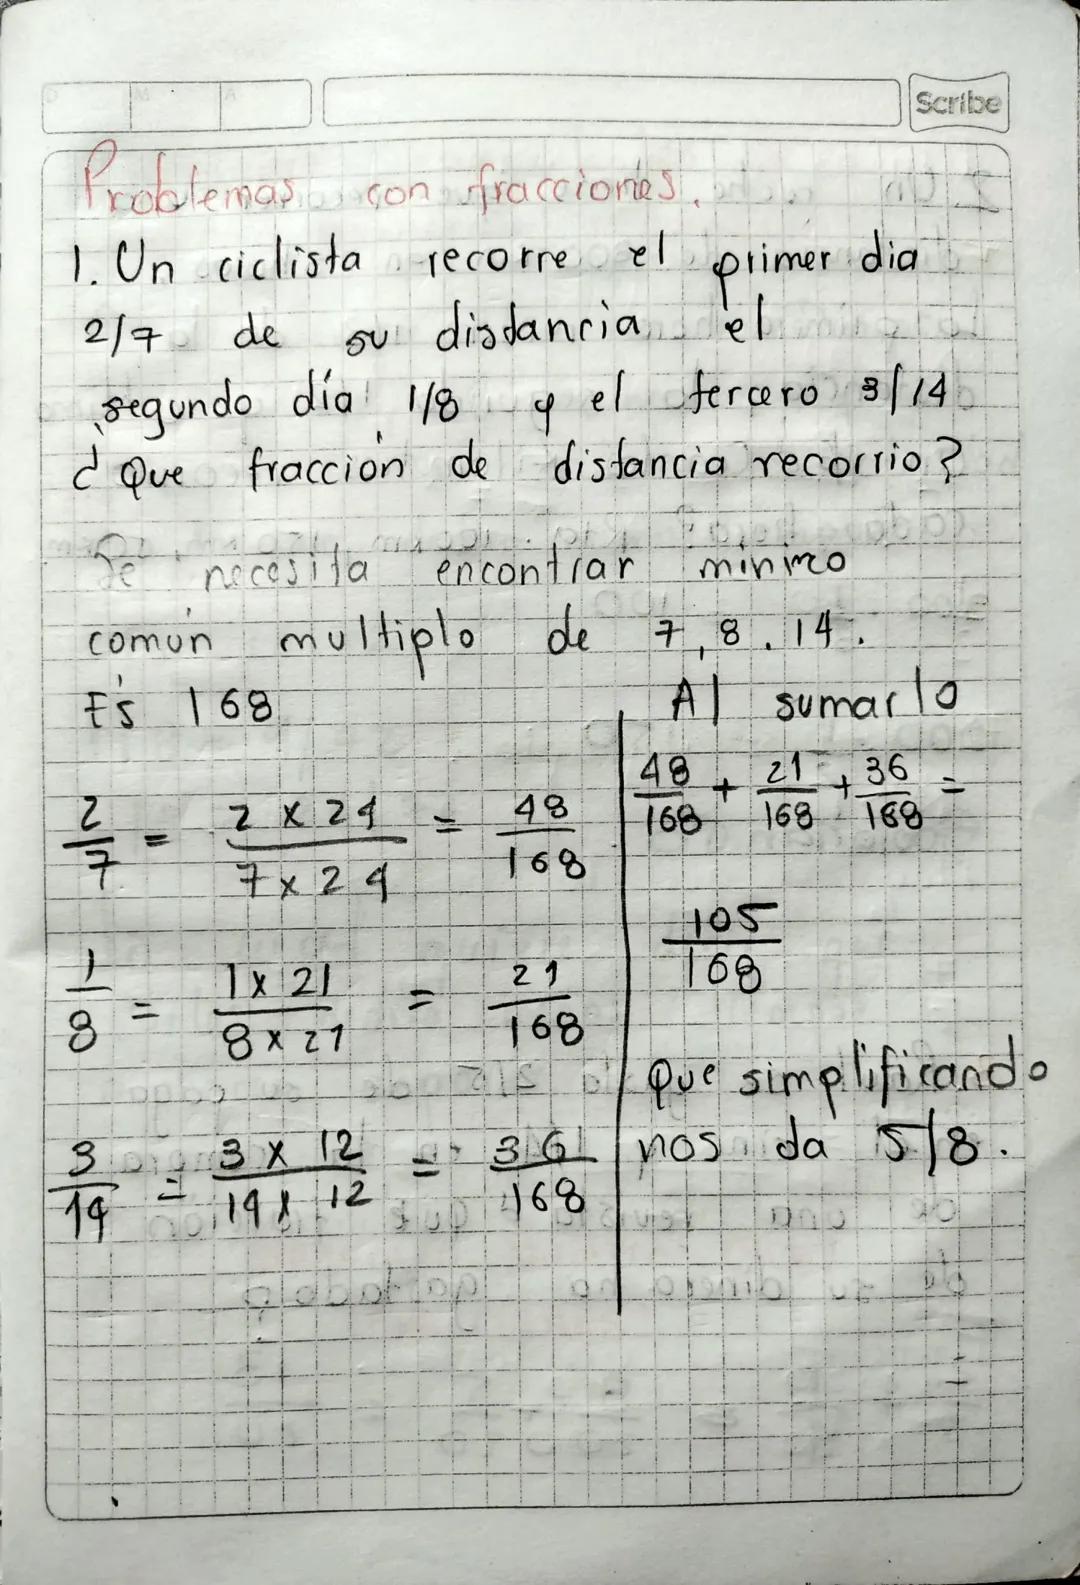 Scribe
D M A
Problemas con fracciones.
1. Un ciclista recorre el primer dia
2/7 de su distancia el
segundo día 1/8 y el tercero 3/14
¿Que fracción de distancia recorrio?
Se necesita encontrar minimo
común multiplo de 7, 8, 14.
Es 168
2/7 = 2 x 24 / 7 x 24 = 48/168
1/8 = 1 x 21 / 8 x 21 = 21/168
3/14 = 3 x 12 / 14 x 12 = 36/168
Al sumarlo
48/168 + 21/168 + 36/168 =
105/168
que simplificando
nos da 5/8.